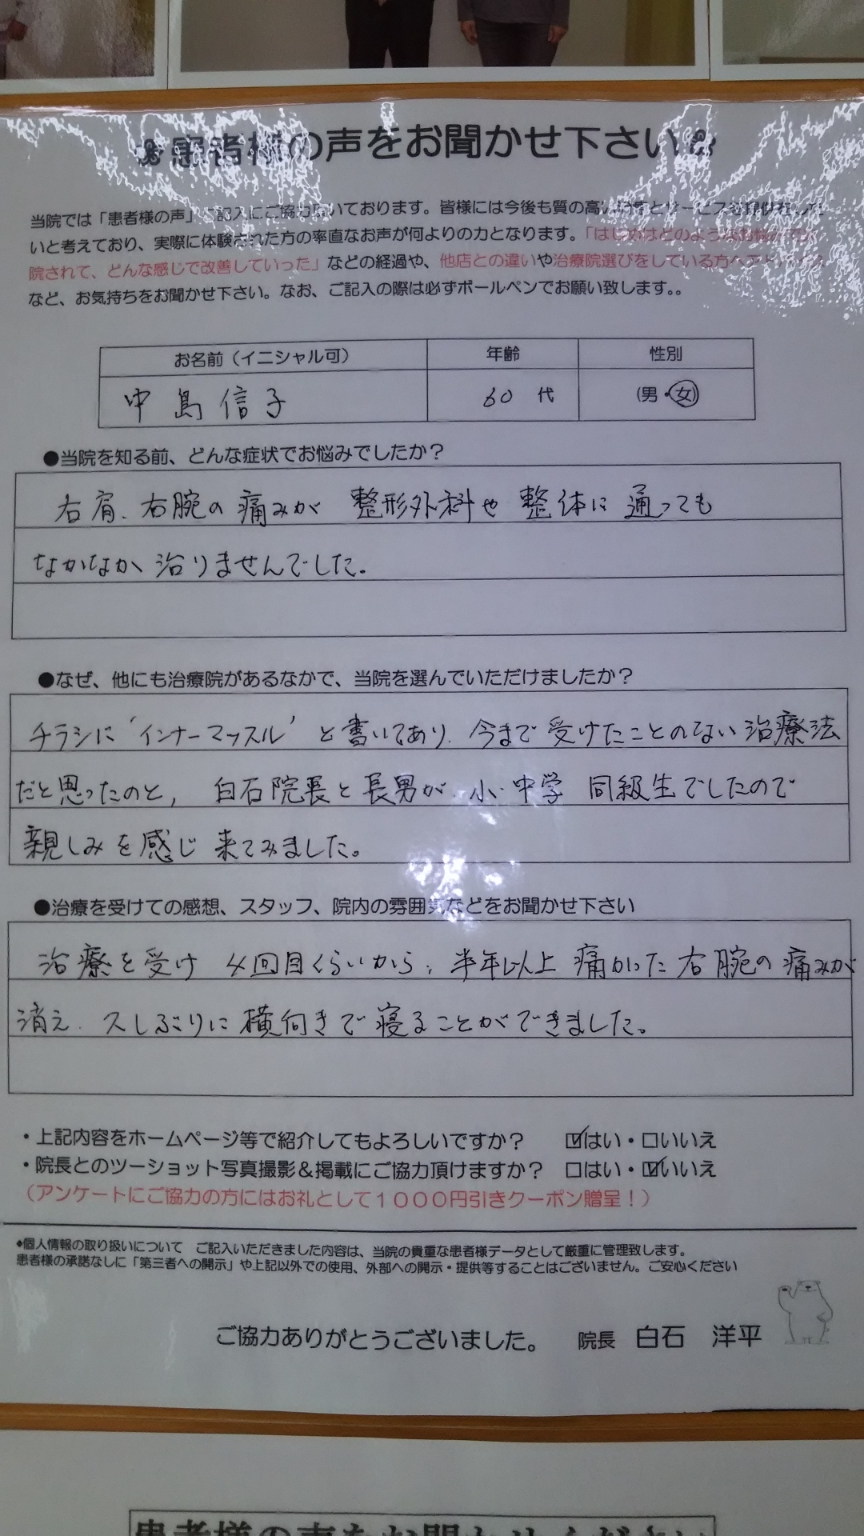 患者様の声をお聞かせ下さい
当院では「患者様の声」ご記入にご協力頂いております。皆様には今後も質の高い
いと考えており、実際に体験された方の率直なお声が何よりの力となります。「はじめはどのような
院されて、どんな感じで改善していった」などの経過や、他店との違いや治療院選びをしている方へ
など、お気持ちをお聞かせ下さい。なお、ご記入の際は必ずボールペンでお願い致します。。
お名前（イニシャル可） 年齢 性別
中島信子 60 代 (男・女)
●当院を知る前、どんな症状でお悩みでしたか？
右肩、右腕の痛みが 整形外科や 整体に 通っても
なかなか 治りませんでした。
●なぜ、他にも治療院があるなかで、当院を選んでいただけましたか？
チラシに'インナーマッスル'と書いてあり、今まで受けたことのない治療法
だと思ったのと, 白石院長と長男が、小・中学 同級生でしたので
親しみを感じ 来てみました。
●治療を受けての感想、スタッフ、院内の雰囲気などをお聞かせ下さい
治療を受け 4回目くらいから、半年以上 痛かった右腕の痛みが
消え、久しぶりに横向きで寝ることができました。
・上記内容をホームページ等で紹介してもよろしいですか？ ☑はい・□いいえ
・院長とのツーショット写真撮影＆掲載にご協力頂けますか？ □はい・☑いいえ
（アンケートにご協力の方にはお礼として１０００円引きクーポン贈呈！）
◆個人情報の取り扱いについて ご記入いただきました内容は、当院の貴重な患者様データとして厳重に管理致します。
患者様の承諾なしに「第三者への開示」や上記以外での使用、外部への開示・提供等することはございません。ご安心ください
ご協力ありがとうございました。 院長 白石 洋平
患者様の声をお聞かせください